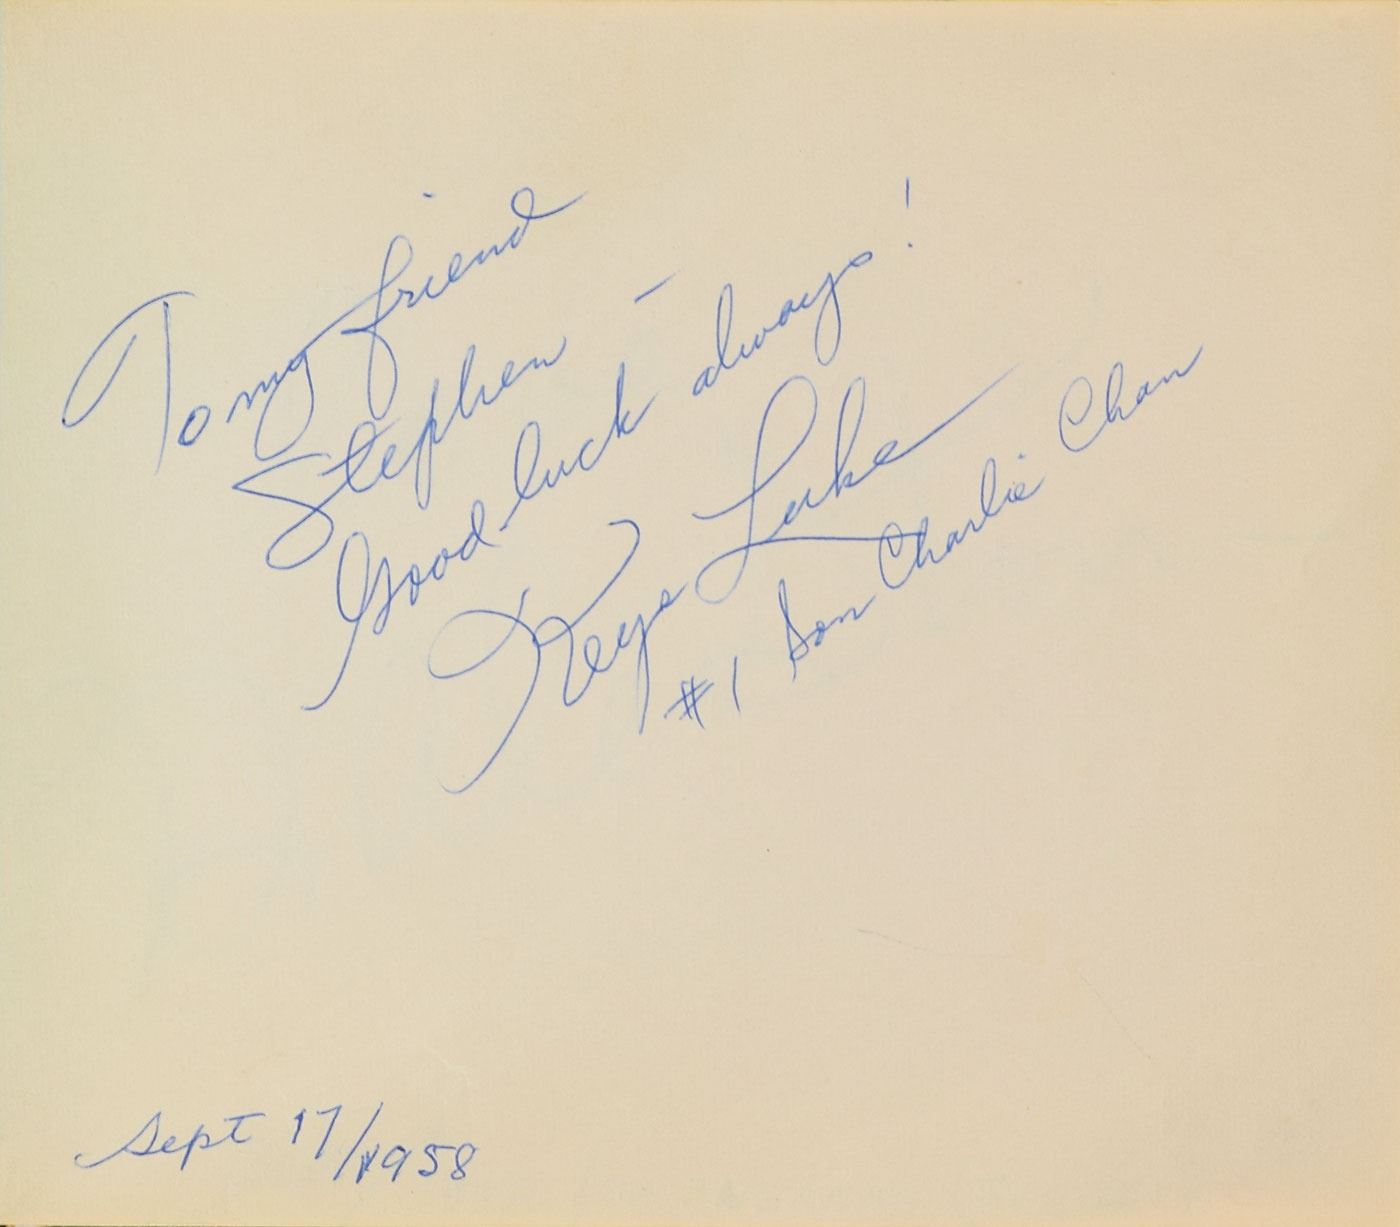 To my friend
Stephen -
Good luck always!
Keye Luke
#1 Son Charlie Chan
Sept 17/1958